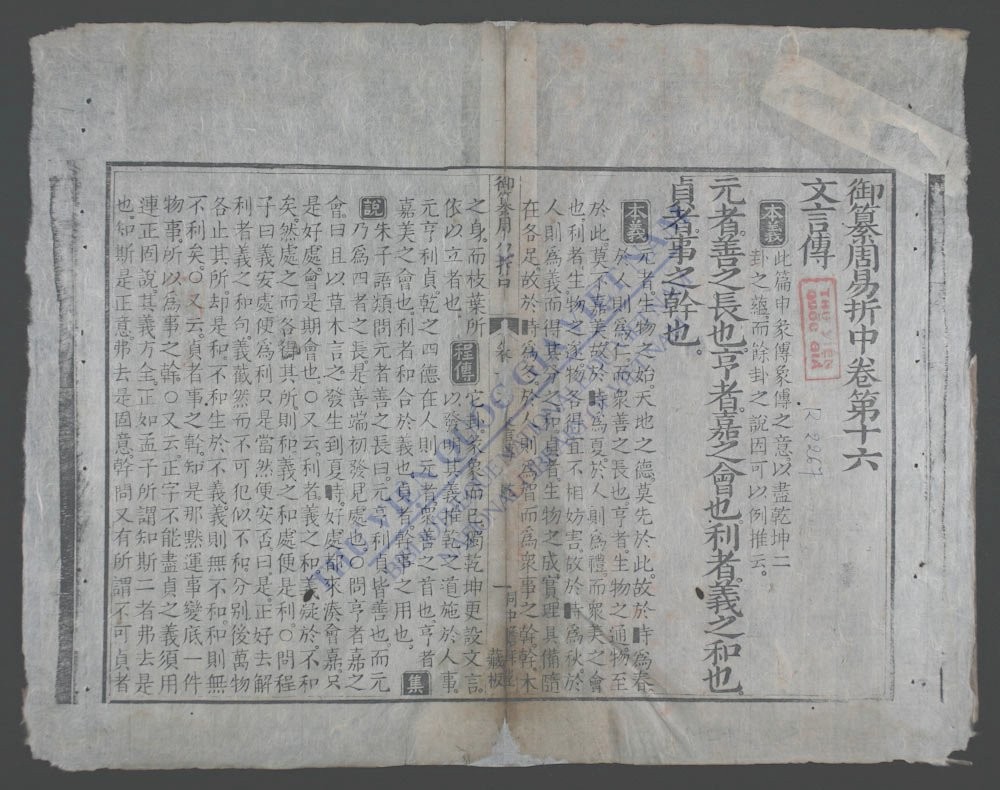 御纂周易折中卷第十六
文言傳
本義 此篇申彖傳象傳之意。以盡乾坤二
卦之蘊。而餘卦之說因可以例推云。
元者。善之長也。亨者。嘉之會也。利者。義之和也。
貞者。事之幹也。
本義 元者生物之始。天地之德。莫先於此。故於時為春。
於人則為仁。而眾善之長也。亨者。生物之通。物至
於此。莫不嘉美。故於時為夏。於人則為禮。而眾美之會
也。利者。生物之遂。物各得宜。不相妨害。故於時為秋。於
人則為義。而得其分之和。貞者。生物之成。實理具備。隨
在各足。故於時為冬。於人則為智。而為眾事之幹。幹。木
御纂周易折中
文言傳
一
藏板
之身。而枝葉所
依以立者也。
程傳 它卦彖象而已。獨乾坤更設文言。
以發明其義。推乾之道。施於人事。
元亨利貞。乾之四德。在人則元者。眾善之首也。亨者。
嘉美之會也。利者。和合於義也。貞者。幹事之用也。 集
說 朱子語類問元者善之長。曰。元亨利貞皆善也。而元
乃為四者之長。是善端初發見處也。○問亨者嘉之
會。曰。且以草木言之。發生到夏時。好處都來湊會。嘉。只
是好處。會是期會也。○又云。利者義之和。義疑於不和
矣。然處之而各得其所則和。義之和處便是利。○問程
子曰義安處便為利。只是當然便安否。曰。是。正好去解
利者義之和句。義截然而不可犯。似不和。分別後。萬物
各止其所。却是和。不和。生於不義。義則無不和。和則無
不利矣。○又云。貞者事之幹。知是那默運事變底一件
物事。所以為事之幹。○又云。正字不能盡貞之義。須用
連正固說其義方全。正如孟子所謂知斯二者弗去是
也。知斯是正意。弗去是固意。幹問又有所謂不可貞者
THƯ VIỆN
QUỐC GIA
THƯ VIỆN QUỐC GIA VIỆT NAM